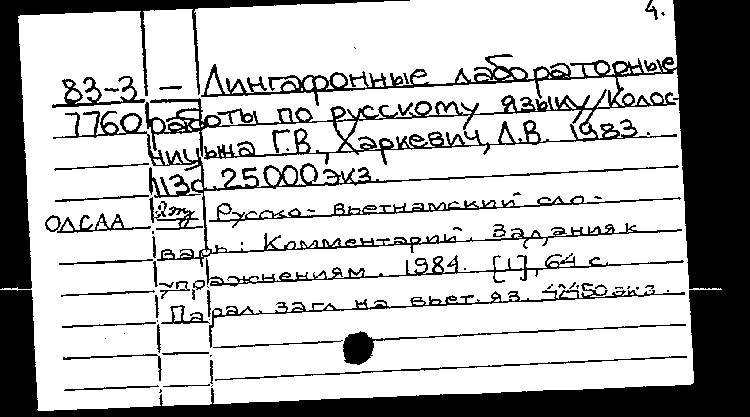 4.
83-3 - Лингафонные лабораторные
7760 работы по русскому языку/Колос-
ницына Г.В., Харкевич, Л.В. 1983.
113с. 25000экз.
ОЛСАА Яз Русско-вьетнамский сло-
варь: Комментарий. Задания к
упражнениям. 1984. [1], 64 с.
Парал. загл на вьет. яз. 42450экз.